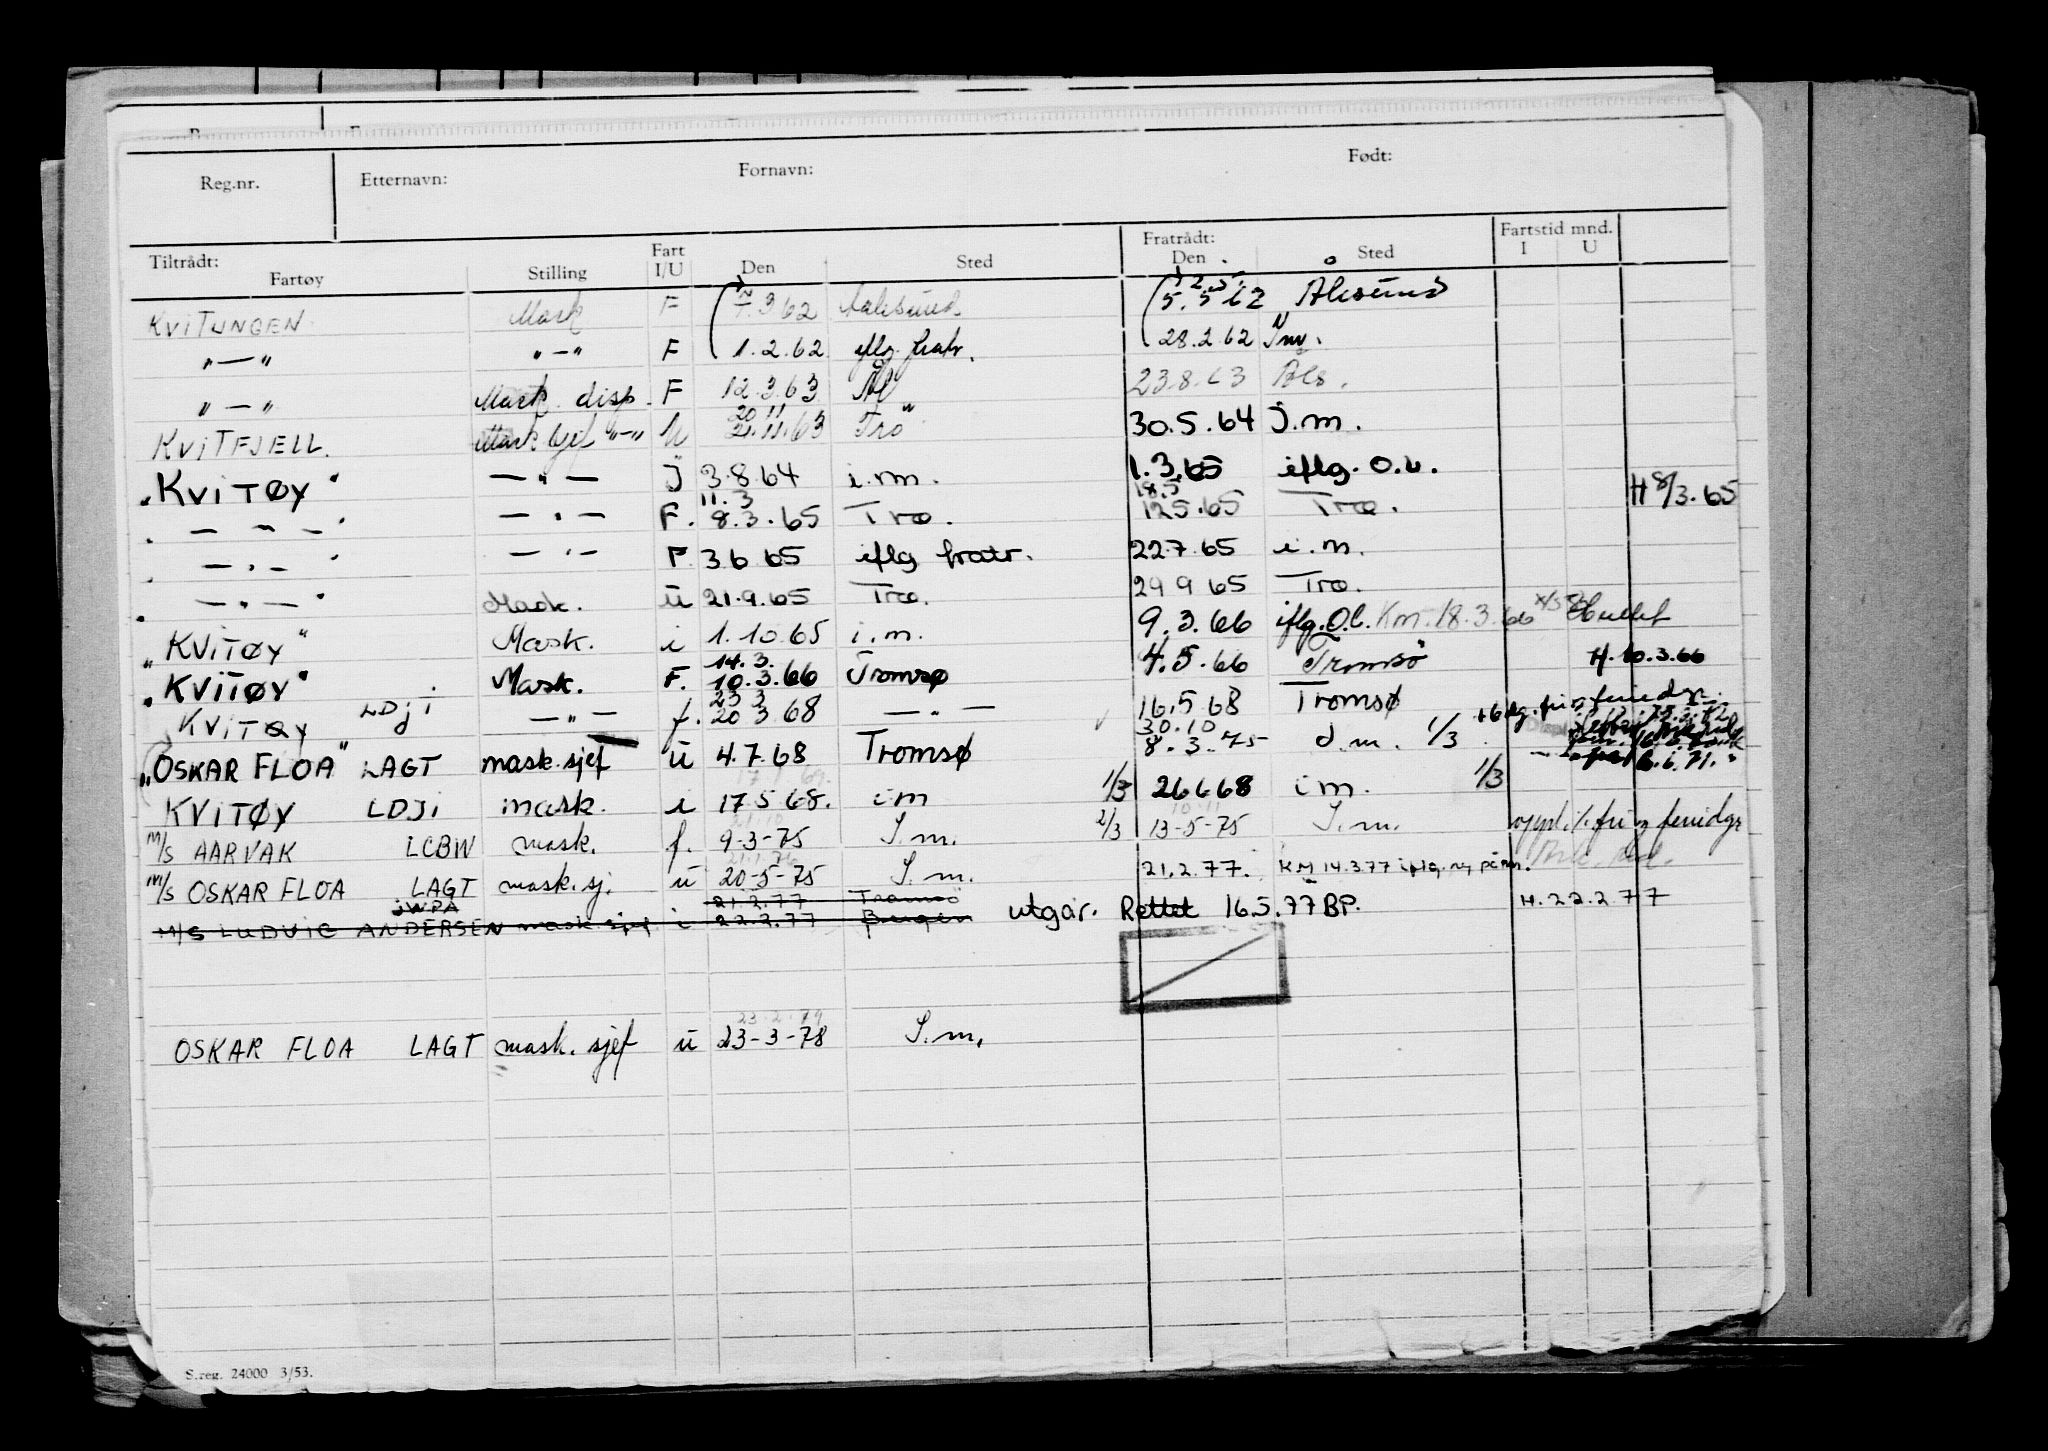 Reg.nr. Etternavn: Fornavn: Født:
Tiltrådt: Fartøy Stilling Fart I/U Den Sted Fratrådt: Den Sted Fartstid mnd. I U
KVITUNGEN Mask F 7.3.62 Aalesund 5.5.62 Alesund
"—" "—" F 1.2.62 iflg. fratr. 28.2.62 I.m.
"—" Mask. disp. F 12.3.63 Ål 23.8.63 Åls.
20 11
KVITFJELL. Masksjef "—" U 21.11.63 Tro 30.5.64 i.m.
"KVITØY" — " — i 3.8.64 i.m. 1.3.65 iflg. O.b.
11.3 18.5
" — " — " — " — F. 8.3.65 Tro. 12.5.65 Tro. H 8/3.65
" — " — " — " — F. 3 6 65 iflg fratr. 22.7.65 i.m.
" — " — " Mask. u 21.9.65 Tro. 29 9 65 Tro.
"KVITØY" Mask. i 1.10.65 i.m. 9.3.66 iflg. O.b. Km. 18.3.66
14.3.
"KVITØY" Mask. F. 10.3.66 Tromsø 4.5.66 Tromsø H. 10.3.66
23 3
KVITØY LDJI — " — f. 20 3 68 — " — 16.5 68 Tromsø
30.10
"OSKAR FLOA" LAGT mask.sjef u 4.7.68 Tromsø 8.3.75 i.m. 1/3
KVITØY LDJI mask. i 17 5 68. i m 1/3 26 6 68 i m. 1/3
21/10 10.11
M/S AARVAK LCBW mask. f. 9-3-75 I.m. 2/3 13-5-75 I.m. feriedgr
21.1.76
M/S OSKAR FLOA LAGT mask.sj. u 20-5-75 I.m. 21.2.77. KM 14.3.77 iflg. ny påm.
JWPA 21.2.77 Tromsø
M/S LUDVIG ANDERSEN mask.sjef i 22.2.77 Bergen utgår. Rettet 16.5.77 BP. H. 22.2 77
OSKAR FLOA LAGT mask. sjef u 23-3-78 I.m.
S.reg. 24000 3/53.